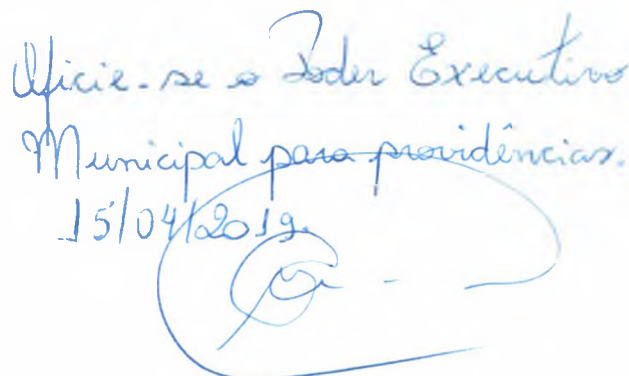 Oficie-se o Poder Executivo
Municipal para providências.
15/04/2019.